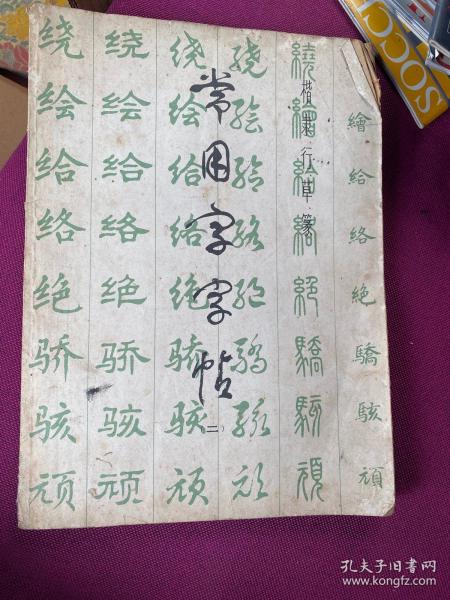 常用字字帖
(二)
楷·隶·行·草·篆
绕绘给络绝骄骇顽
绕绘给络绝骄骇顽
绕绘给络绝骄骇顽
绕绘给络绝骄骇顽
繞繪給絡絕驕駭頑
繪給絡絶驕駭頑
SOCC
孔夫子旧书网
www.kongfz.com